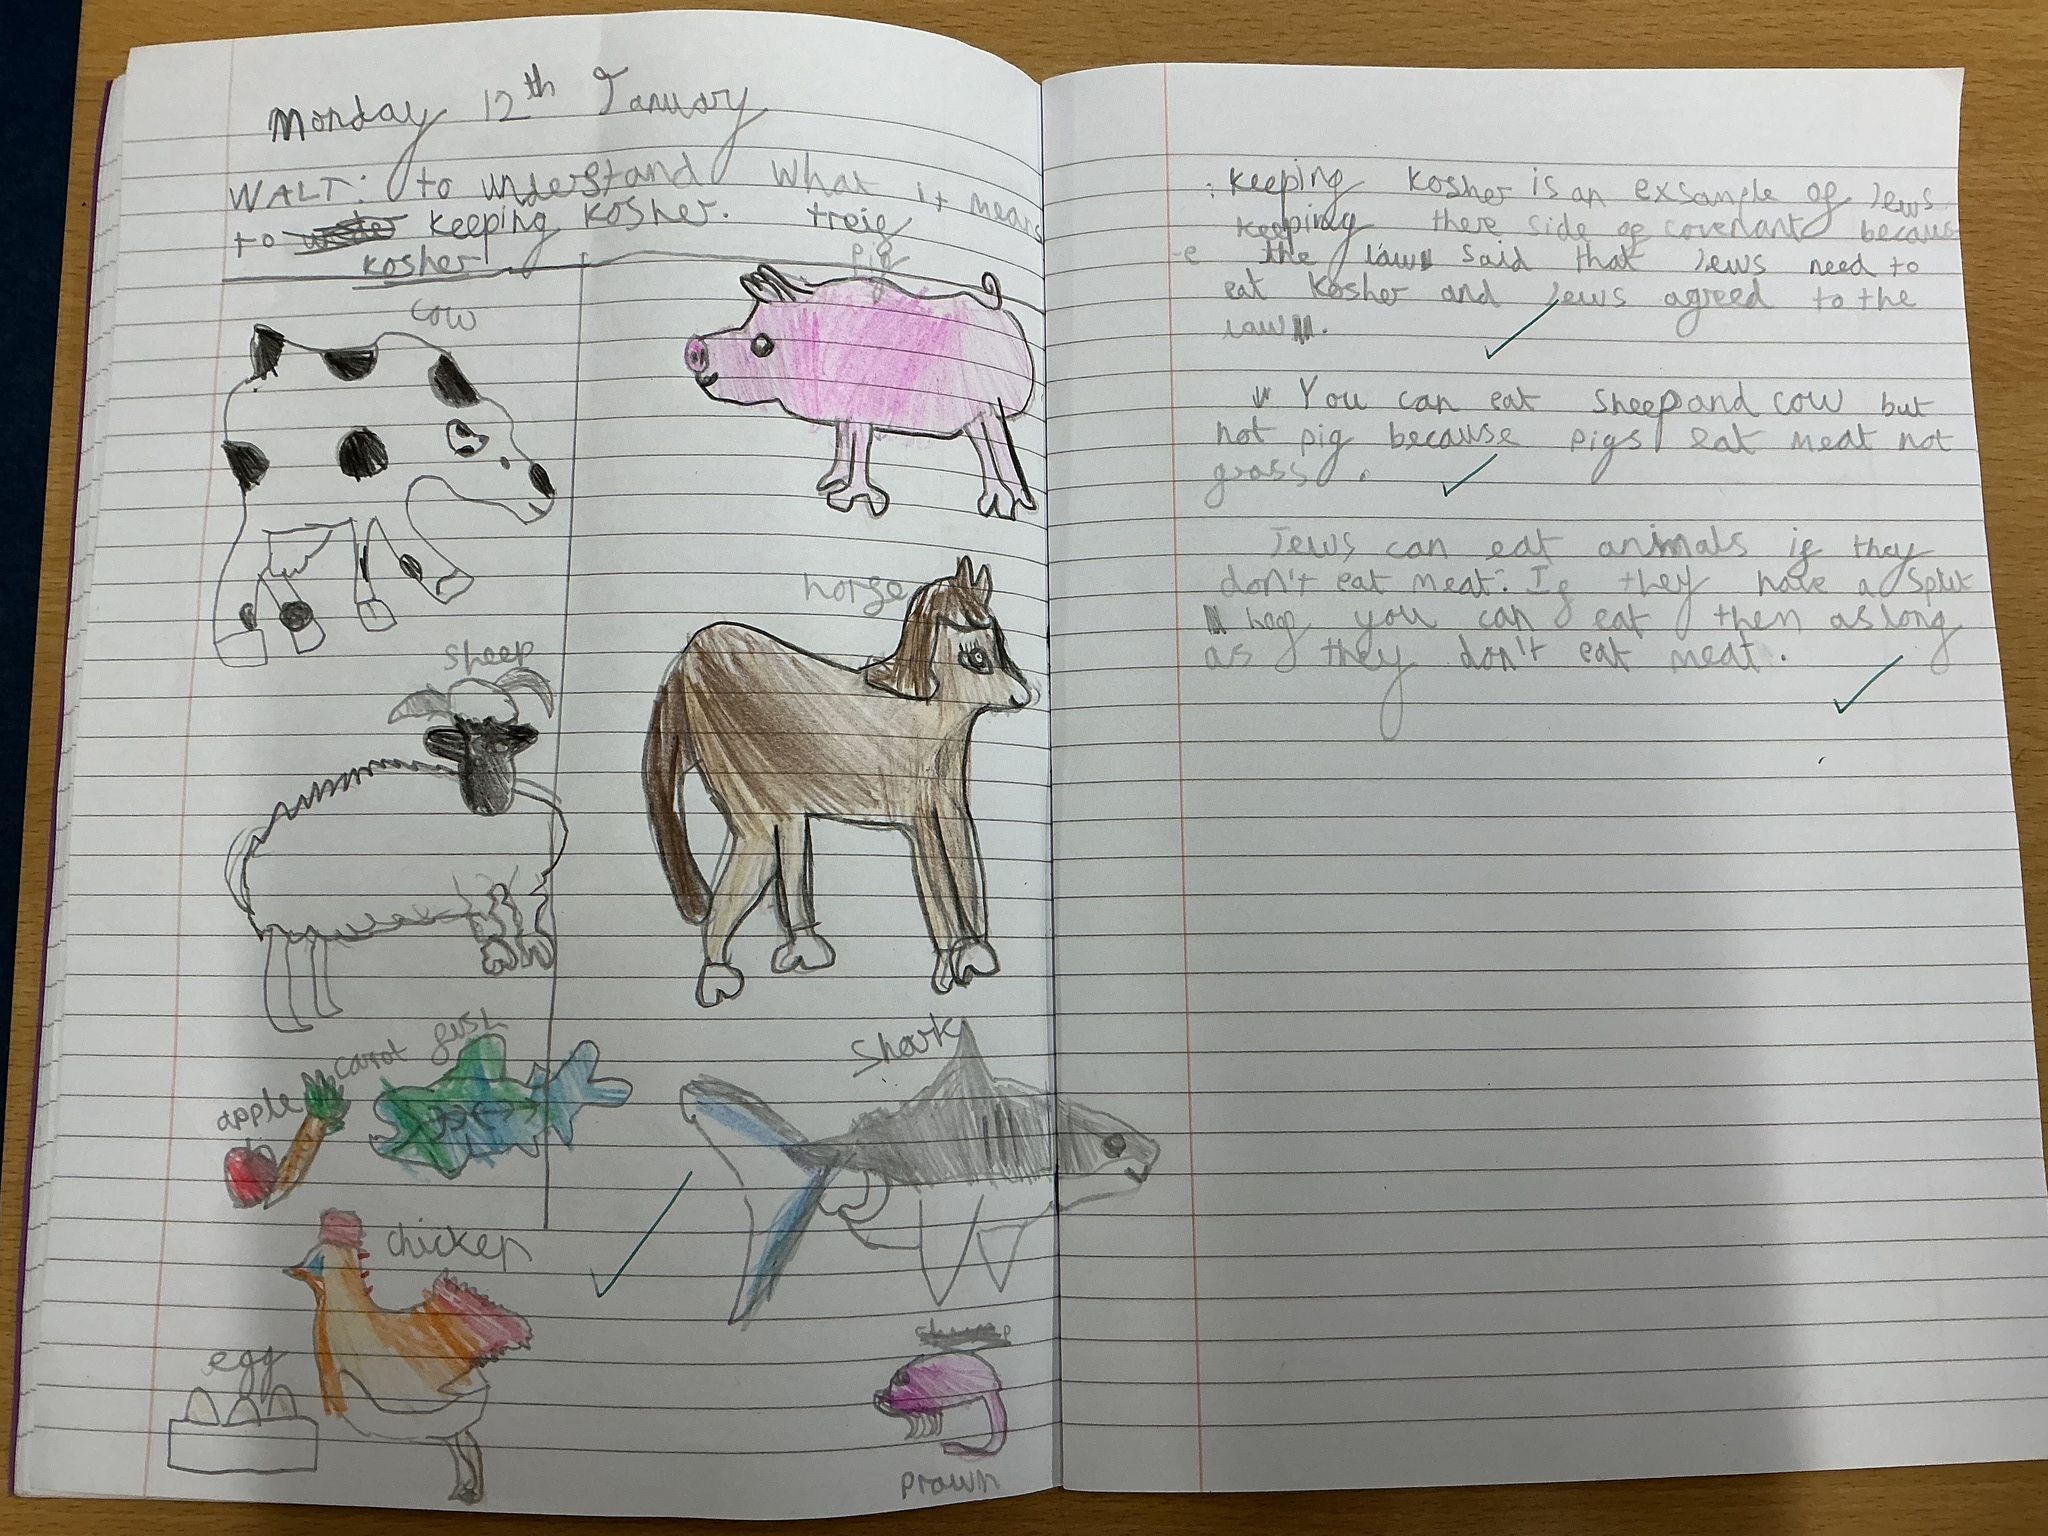 Monday 12th January
WALT: to understand what it means
to keeping kosher. treig
kosher
pig
cow
horse
sheep
carrot fish
apple
shark
chicken
egg
prawn
: Keeping kosher is an exsample of Jews
keeping there side of covenant becaus
-e the law said that Jews need to
eat kosher and Jews agreed to the
law.
You can eat sheep and cow but
not pig because pigs eat meat not
grass.
Jews can eat animals if they
don't eat meat. If they have a split
hoof you can eat them as long
as they don't eat meat.